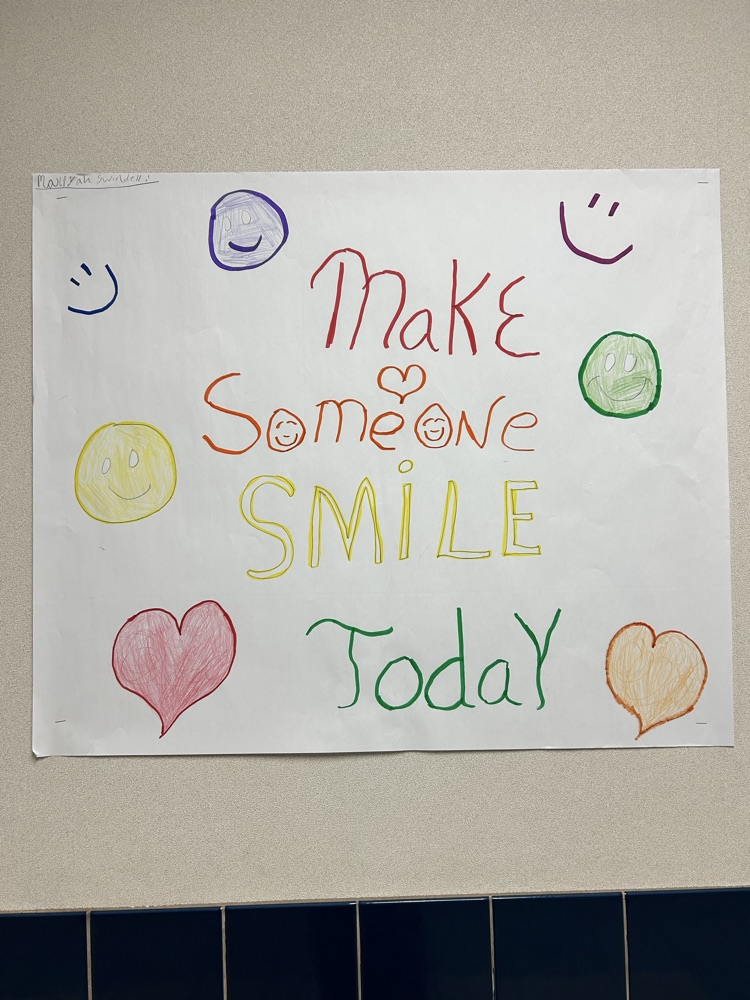 Swindell!
MaKE
SomeoNe
SMiLE
TodaY